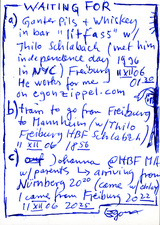 WAITING FOR
a) Ganter Pils + Whiskey
in bar "litfass" w/
Thilo Schlabach (met him
independence day 1996
in NYC) Freiburg 11 XII 06
He works for me 01 20
on egonzippel.com
b) train to go from Freiburg
to Mannheim w/ Thilo
Freiburg HBF Schlabach
11 XII 06 18 56
c) Johanna @ HBF MA
w/ parents arriving from
Nürnberg 20 20 (came w/ delay
I came from Freiburg 20 22
11 XII 06 20 25